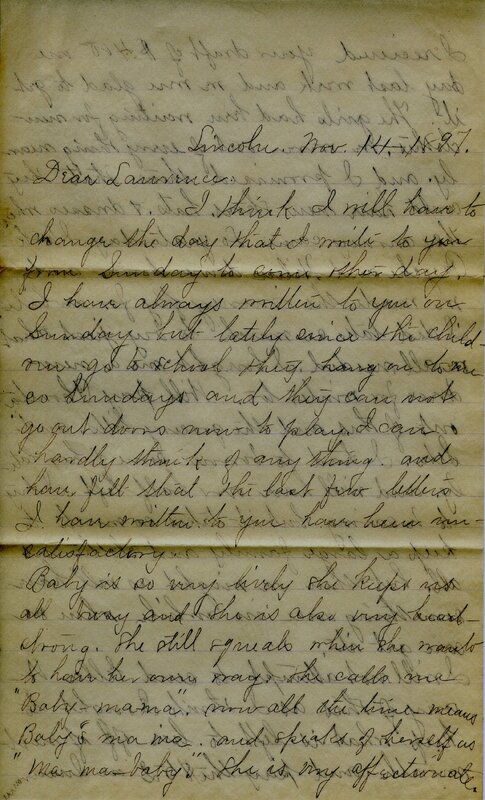 Lincoln. Nov. 14. 1897.
Dear Lawrence.
I think I will have to
change the day that I write to you
from Sunday to some other day.
I have always written to you on
Sunday but lately since the child-
ren go to school they hang on to me
so Sundays and they can not
go out doors now to play I can
hardly think of any thing and
have felt that the last few letters
I have written to you have been un-
satisfactory.
Baby is so very lively she keeps us
all busy and she is also very head
strong. She still squeals when she wants
to have her own way. She calls me
"Baby-mama". now all the time means
Baby's mama. and speaks of herself as
"Ma ma-baby." She is very affectionate.